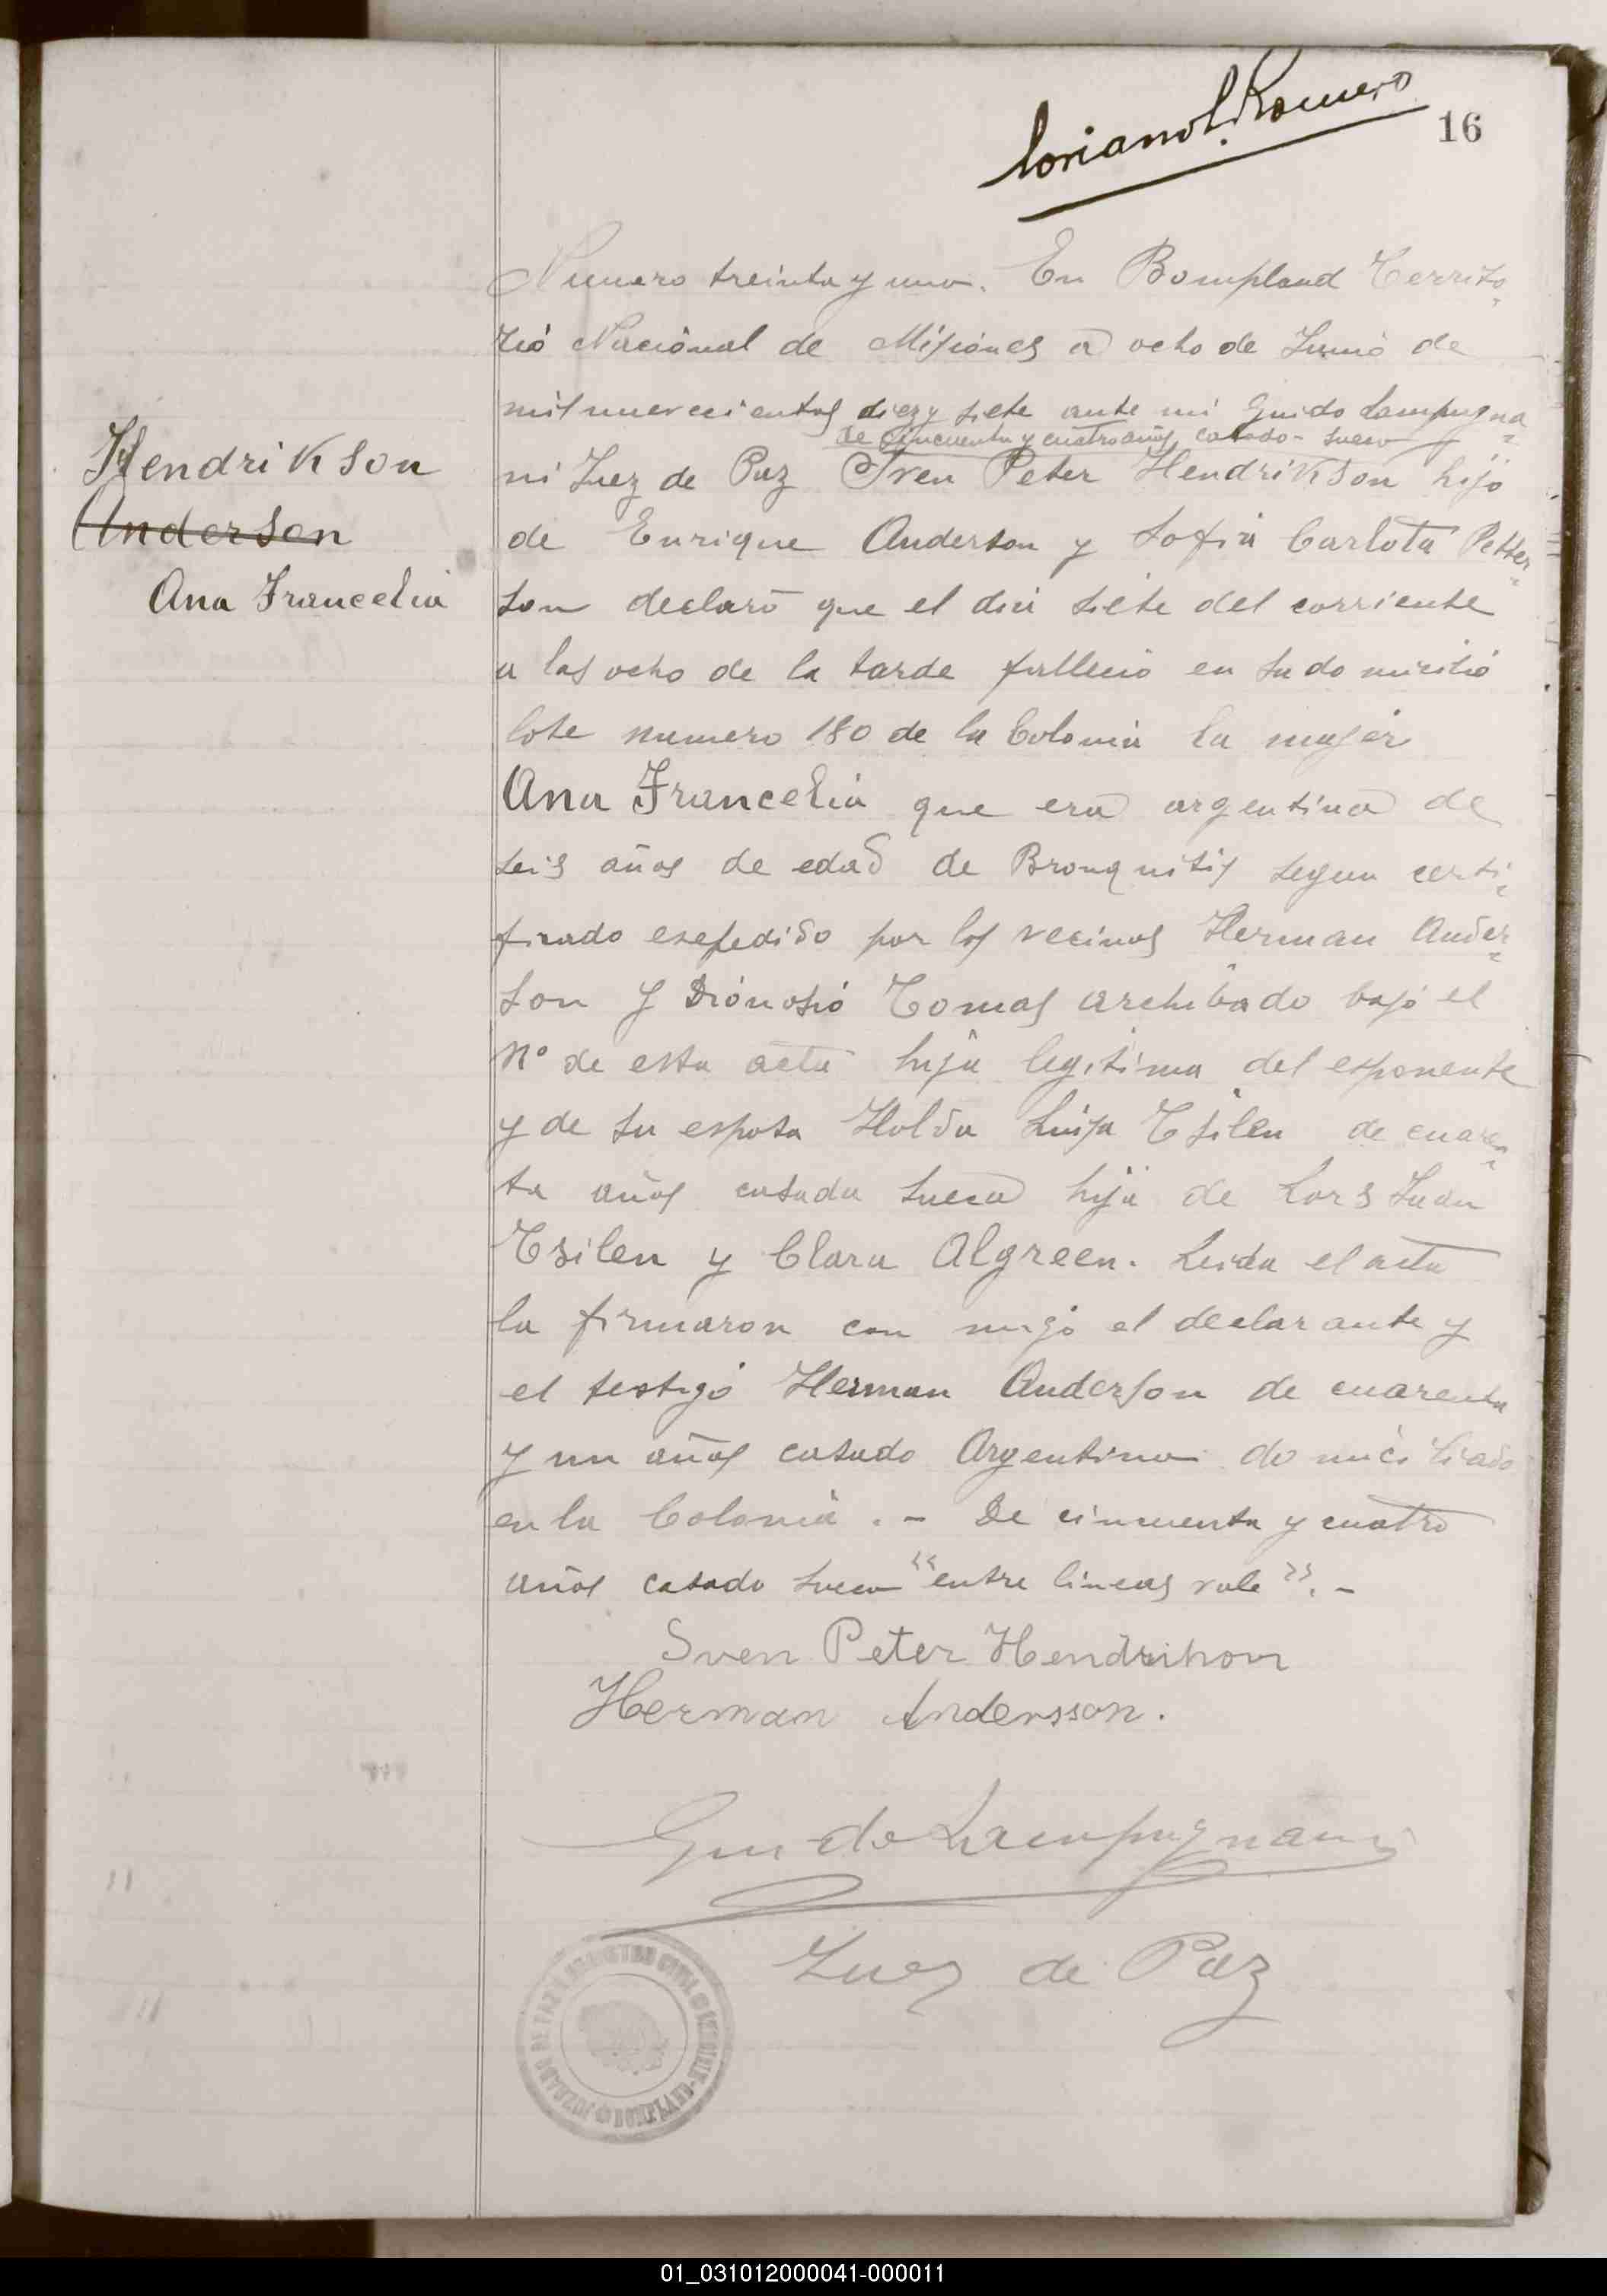 Coriano L. Romero
16
Numero treinta y uno. En Bompland Territo-
rio Nacional de Misiones a ocho de Junio de
mil nuevecientos diez y siete ante mi Guido Lampugna-
de cincuenta y cuatro años, casado - sueco
ni Juez de Paz Sven Peter Hendrikson hijo
de Enrique Anderson y Sofia Carlota Petter-
son declaró que el dia siete del corriente
a las ocho de la tarde fallecio en su domicilio
lote numero 180 de la Colonia la mujer
Ana Francelia que era argentina de
seis años de edad de Bronquitis segun certi-
ficado esepedido por los vecinos Herman Ander-
son y Dionosio Tomas archibado bajo el
Nº de esta acta hija legitima del esponente
y de su esposa Holda Luisa Tsilen de cuaren-
ta años casada sueca hija de Lars Juan
Tsilen y Clara Algreen. Leida el acta
la firmaron con migo el declarante y
el testigo Herman Anderson de cuarenta
y un años casado Argentino domiciliado
en la Colonia . - De cincuenta y cuatro
años casado sueco "entre lineas vale". -
Hendrikson
Anderson
Ana Francelia
Sven Peter Hendrikson
Herman Andersson.
Guido Lampugnani
Juez de Paz
01_031012000041-000011